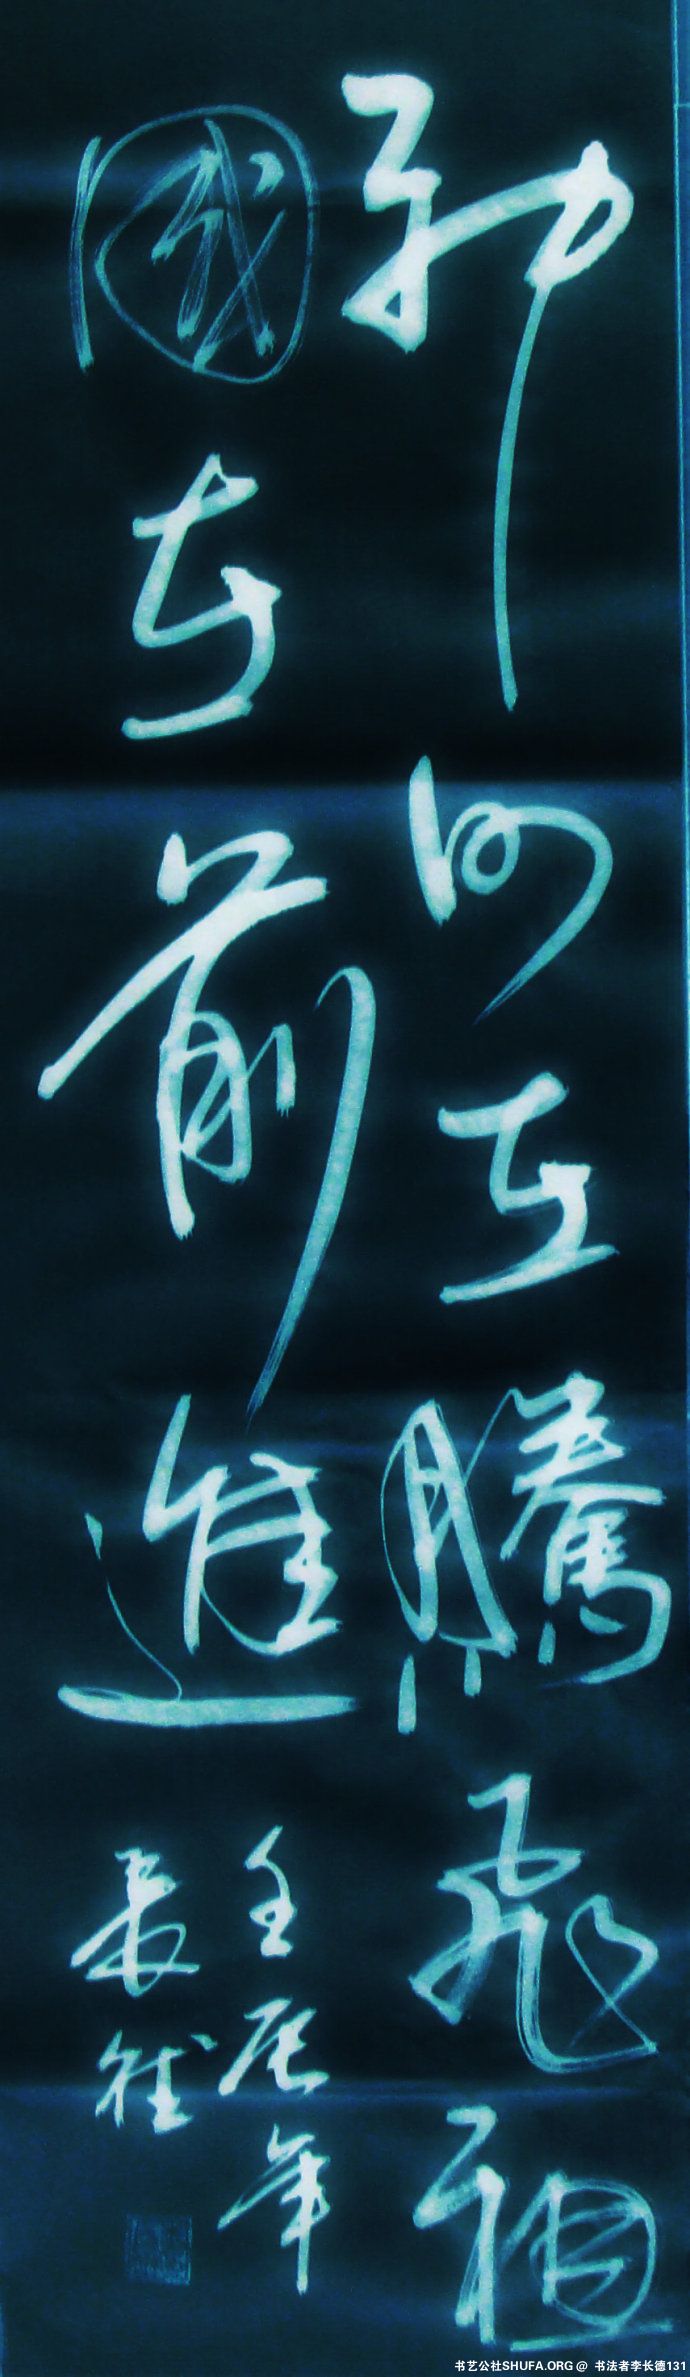 神州在騰飛祖
國在前進
壬辰年
長德
书艺公社SHUFA.ORG @ 书法者李长德131